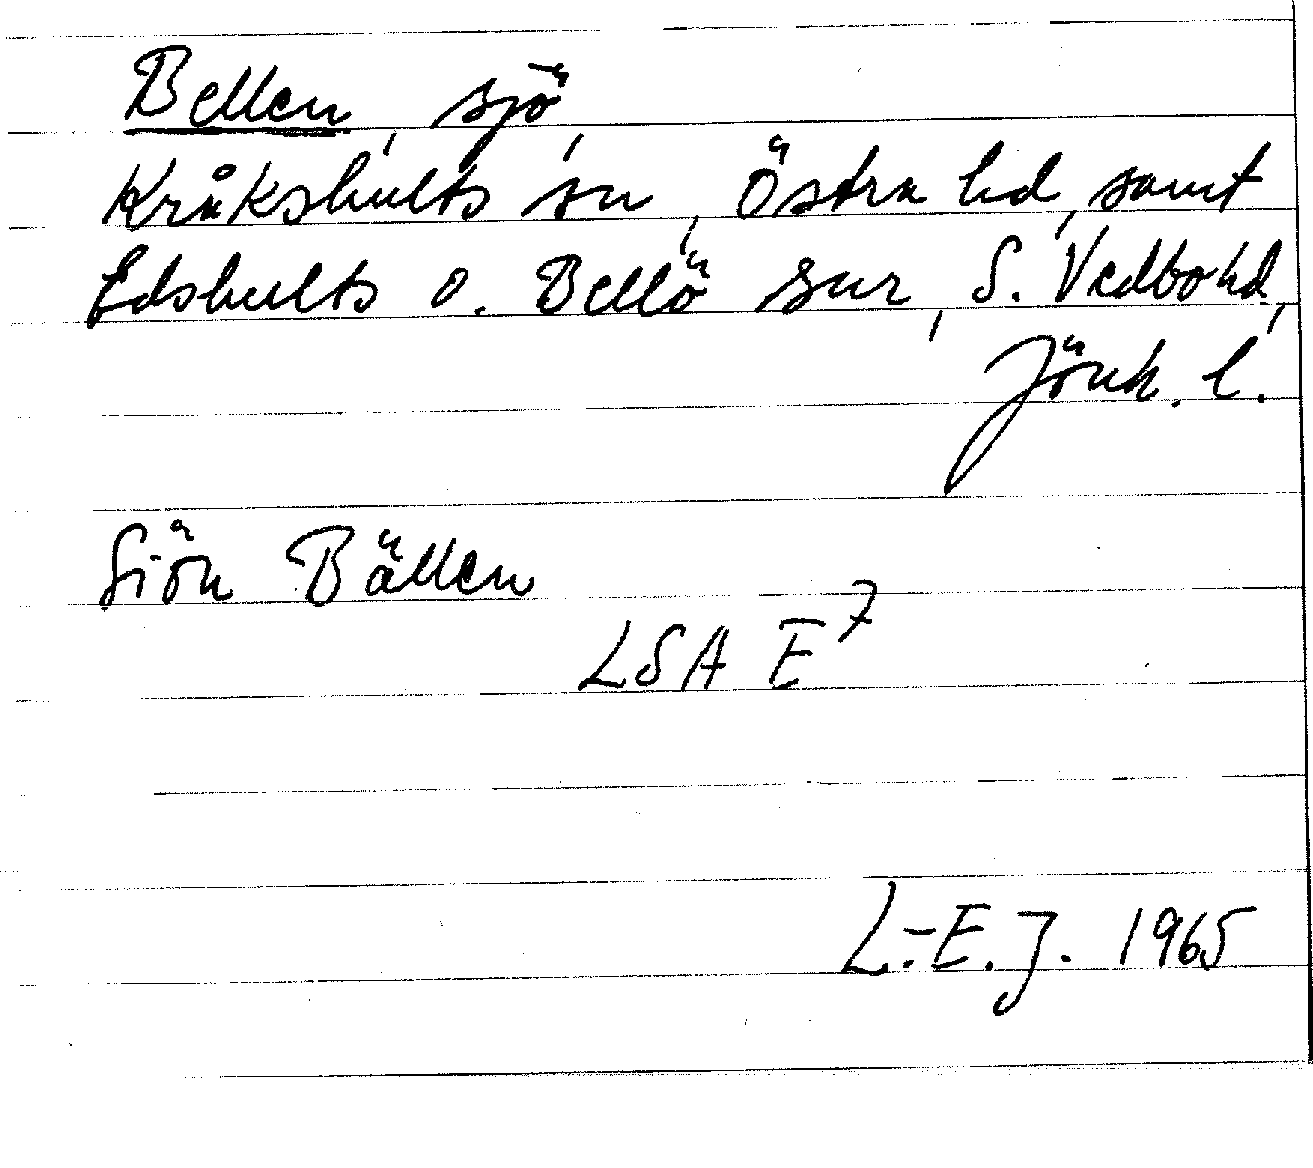 Bellen, sjö,
Kråkshults sn, Östra hd, samt
Edshults o. Bellö snr, S. Vedbo hd,
Jönk. l.
Siön Bällen
LSA E7
L.-E. J. 1965